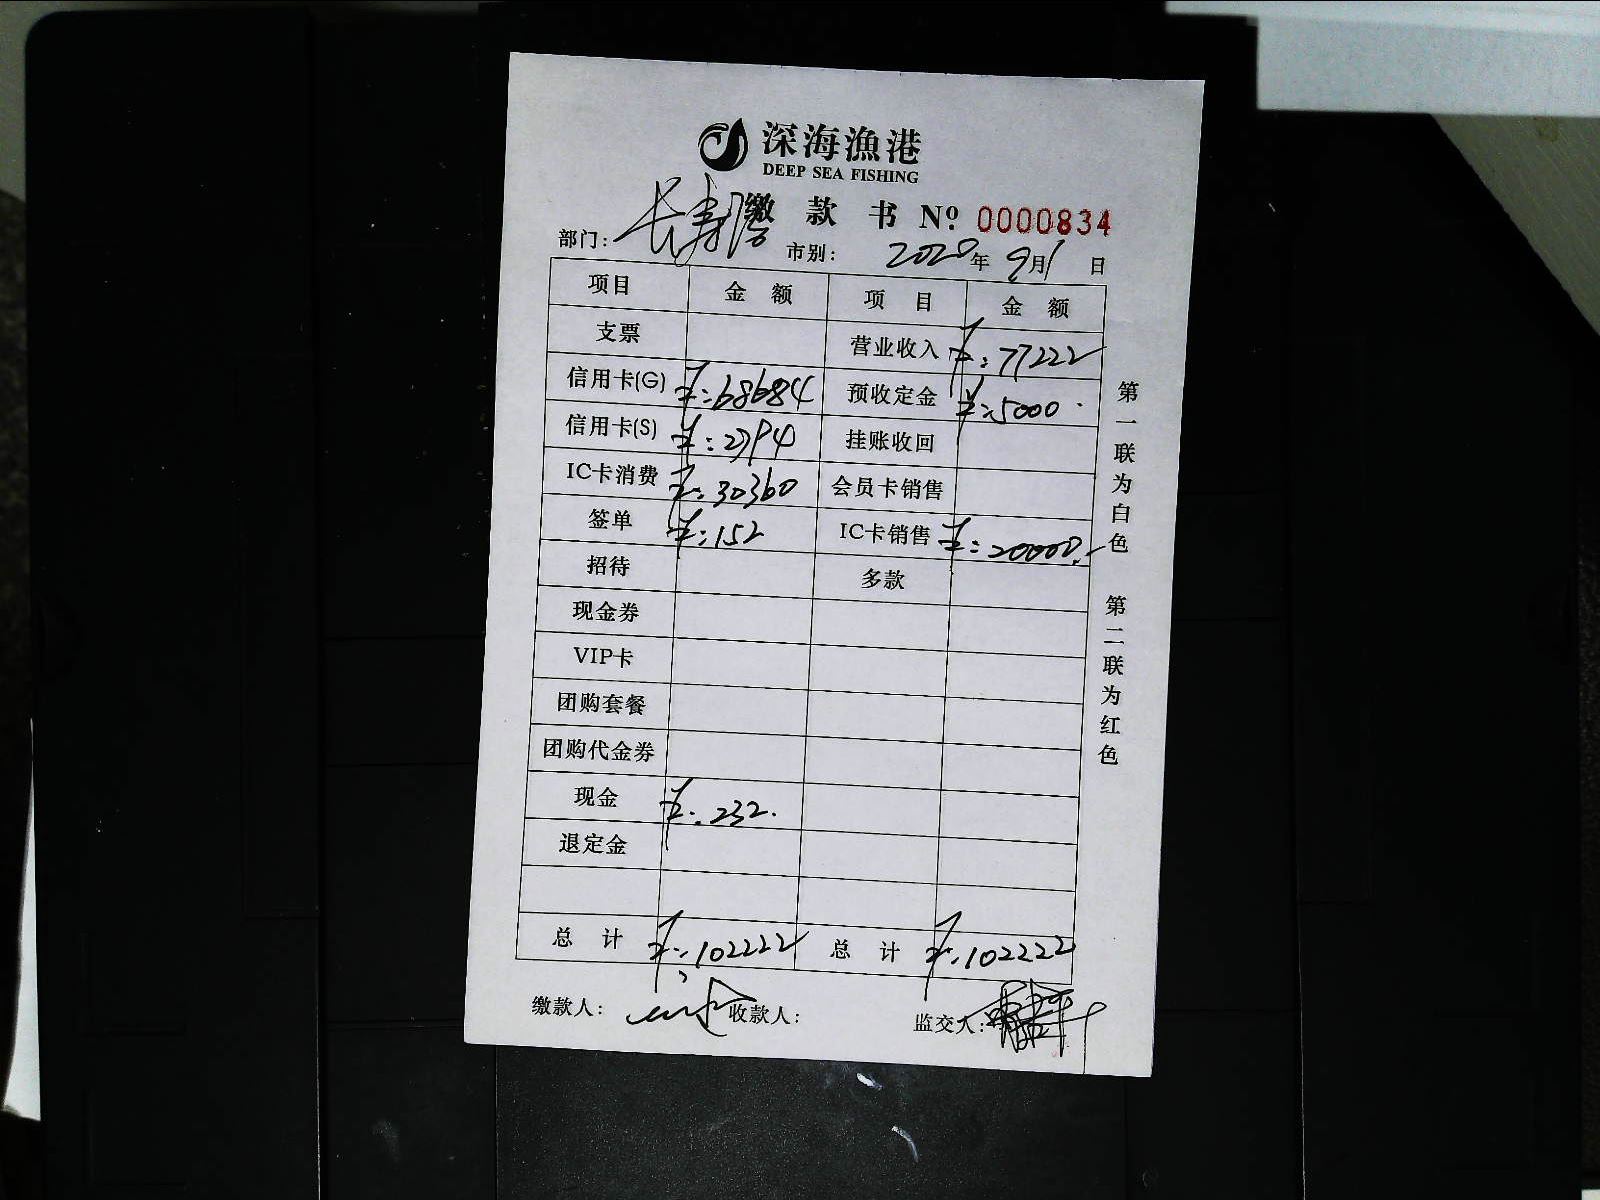 深海漁港
DEEP SEA FISHING
缴 款 书 Nº: 0000834
部门: 长寿路 市别: 2020年9月1日
项目 金 额 项 目 金 额
支票 营业收入 ¥:77222
信用卡(G) ¥:68684 预收定金 ¥:5000
信用卡(S) ¥:2794 挂账收回
IC卡消费 ¥:30360 会员卡销售
签单 ¥:152 IC卡销售 ¥:20000.-
招待 多款
现金券
VIP卡
团购套餐
团购代金券
现金 ¥:232.
退定金
总 计 ¥:102222 总 计 ¥:102222
缴款人: 收款人: 监交人:
第一联为白色 第二联为红色